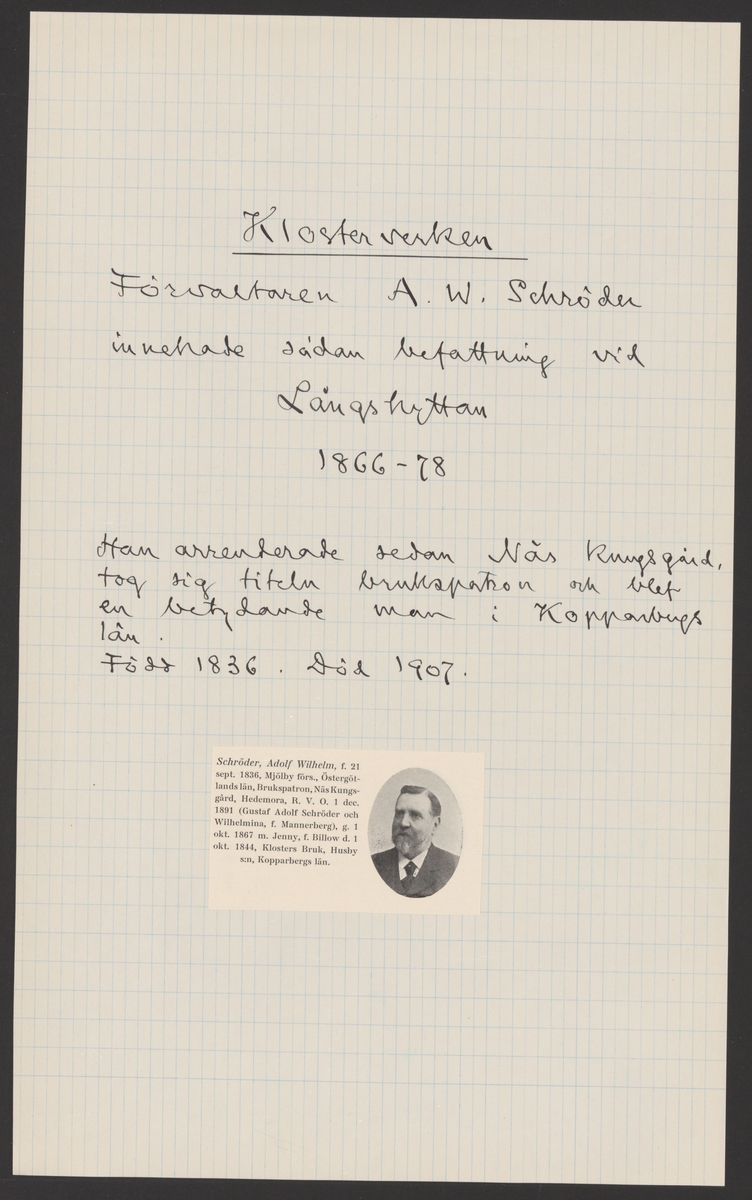 Klosterverken
Förvaltaren A. W. Schröder
innehade sådan befattning vid
Långshyttan
1866-78
Han arrenderade sedan Näs Kungsgård,
tog sig titeln brukspatron och blef
en betydande man i Kopparbergs
län.
Född 1836. Död 1907.
Schröder, Adolf Wilhelm, f. 21
sept. 1836, Mjölby förs., Östergöt-
lands län, Brukspatron, Näs Kungs-
gård, Hedemora, R. V. O. 1 dec.
1891 (Gustaf Adolf Schröder och
Wilhelmina, f. Mannerberg), g. 1
okt. 1867 m. Jenny, f. Billow d. 1
okt. 1844, Klosters Bruk, Husby
s:n, Kopparbergs län.